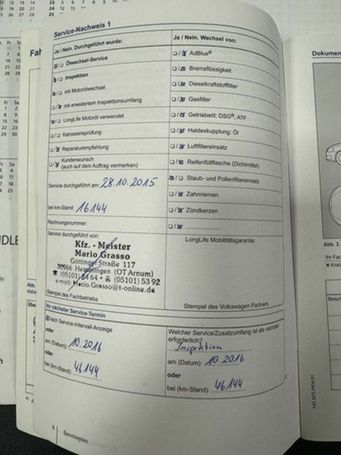 Service-Nachweis 1
Ja / Nein. Durchgeführt wurde:
Ölwechsel-Service
Inspektion
mit Motorölwechsel
mit erweitertem Inspektionsumfang
LongLife Motoröl verwendet
Karosserieprüfung
Reparaturempfehlung
Kundenwunsch
(auch auf dem Auftrag vermerken)
Service durchgeführt am: 28.10.2015
bei km-Stand: 16144
Rechnungsnummer:
Service durchgeführt von:
Kfz. - Meister
Mario Grasso
Straße 117
30966 Hemmingen (OT Arnum)
(05101) 53 92
Mario.Grasso@t-online.de
Stempel des Fachbetriebs
Ja / Nein. Wechsel von:
AdBlue®
Bremsflüssigkeit
Dieselkraftstofffilter
Gasfilter
Getriebeöl: DSG®, ATF
Haldexkupplung: Öl
Luftfiltereinsatz
Reifenfüllflasche (Dichtmittel)
Staub- und Pollenfiltereinsatz
Zahnriemen
Zündkerzen
LongLife Mobilitätsgarantie
Stempel des Volkswagen Partners
Ihr nächster Service-Termin
nach Service-Intervall-Anzeige
oder
am (Datum): 10.2016
oder
bei (km-Stand): 46144
Welcher Service/Zusatzumfang ist als nächster
erforderlich?
Inspektion
am (Datum): 10.2016
oder
bei (km-Stand): 46144
Serviceplan
Dokumen
Abb. 3